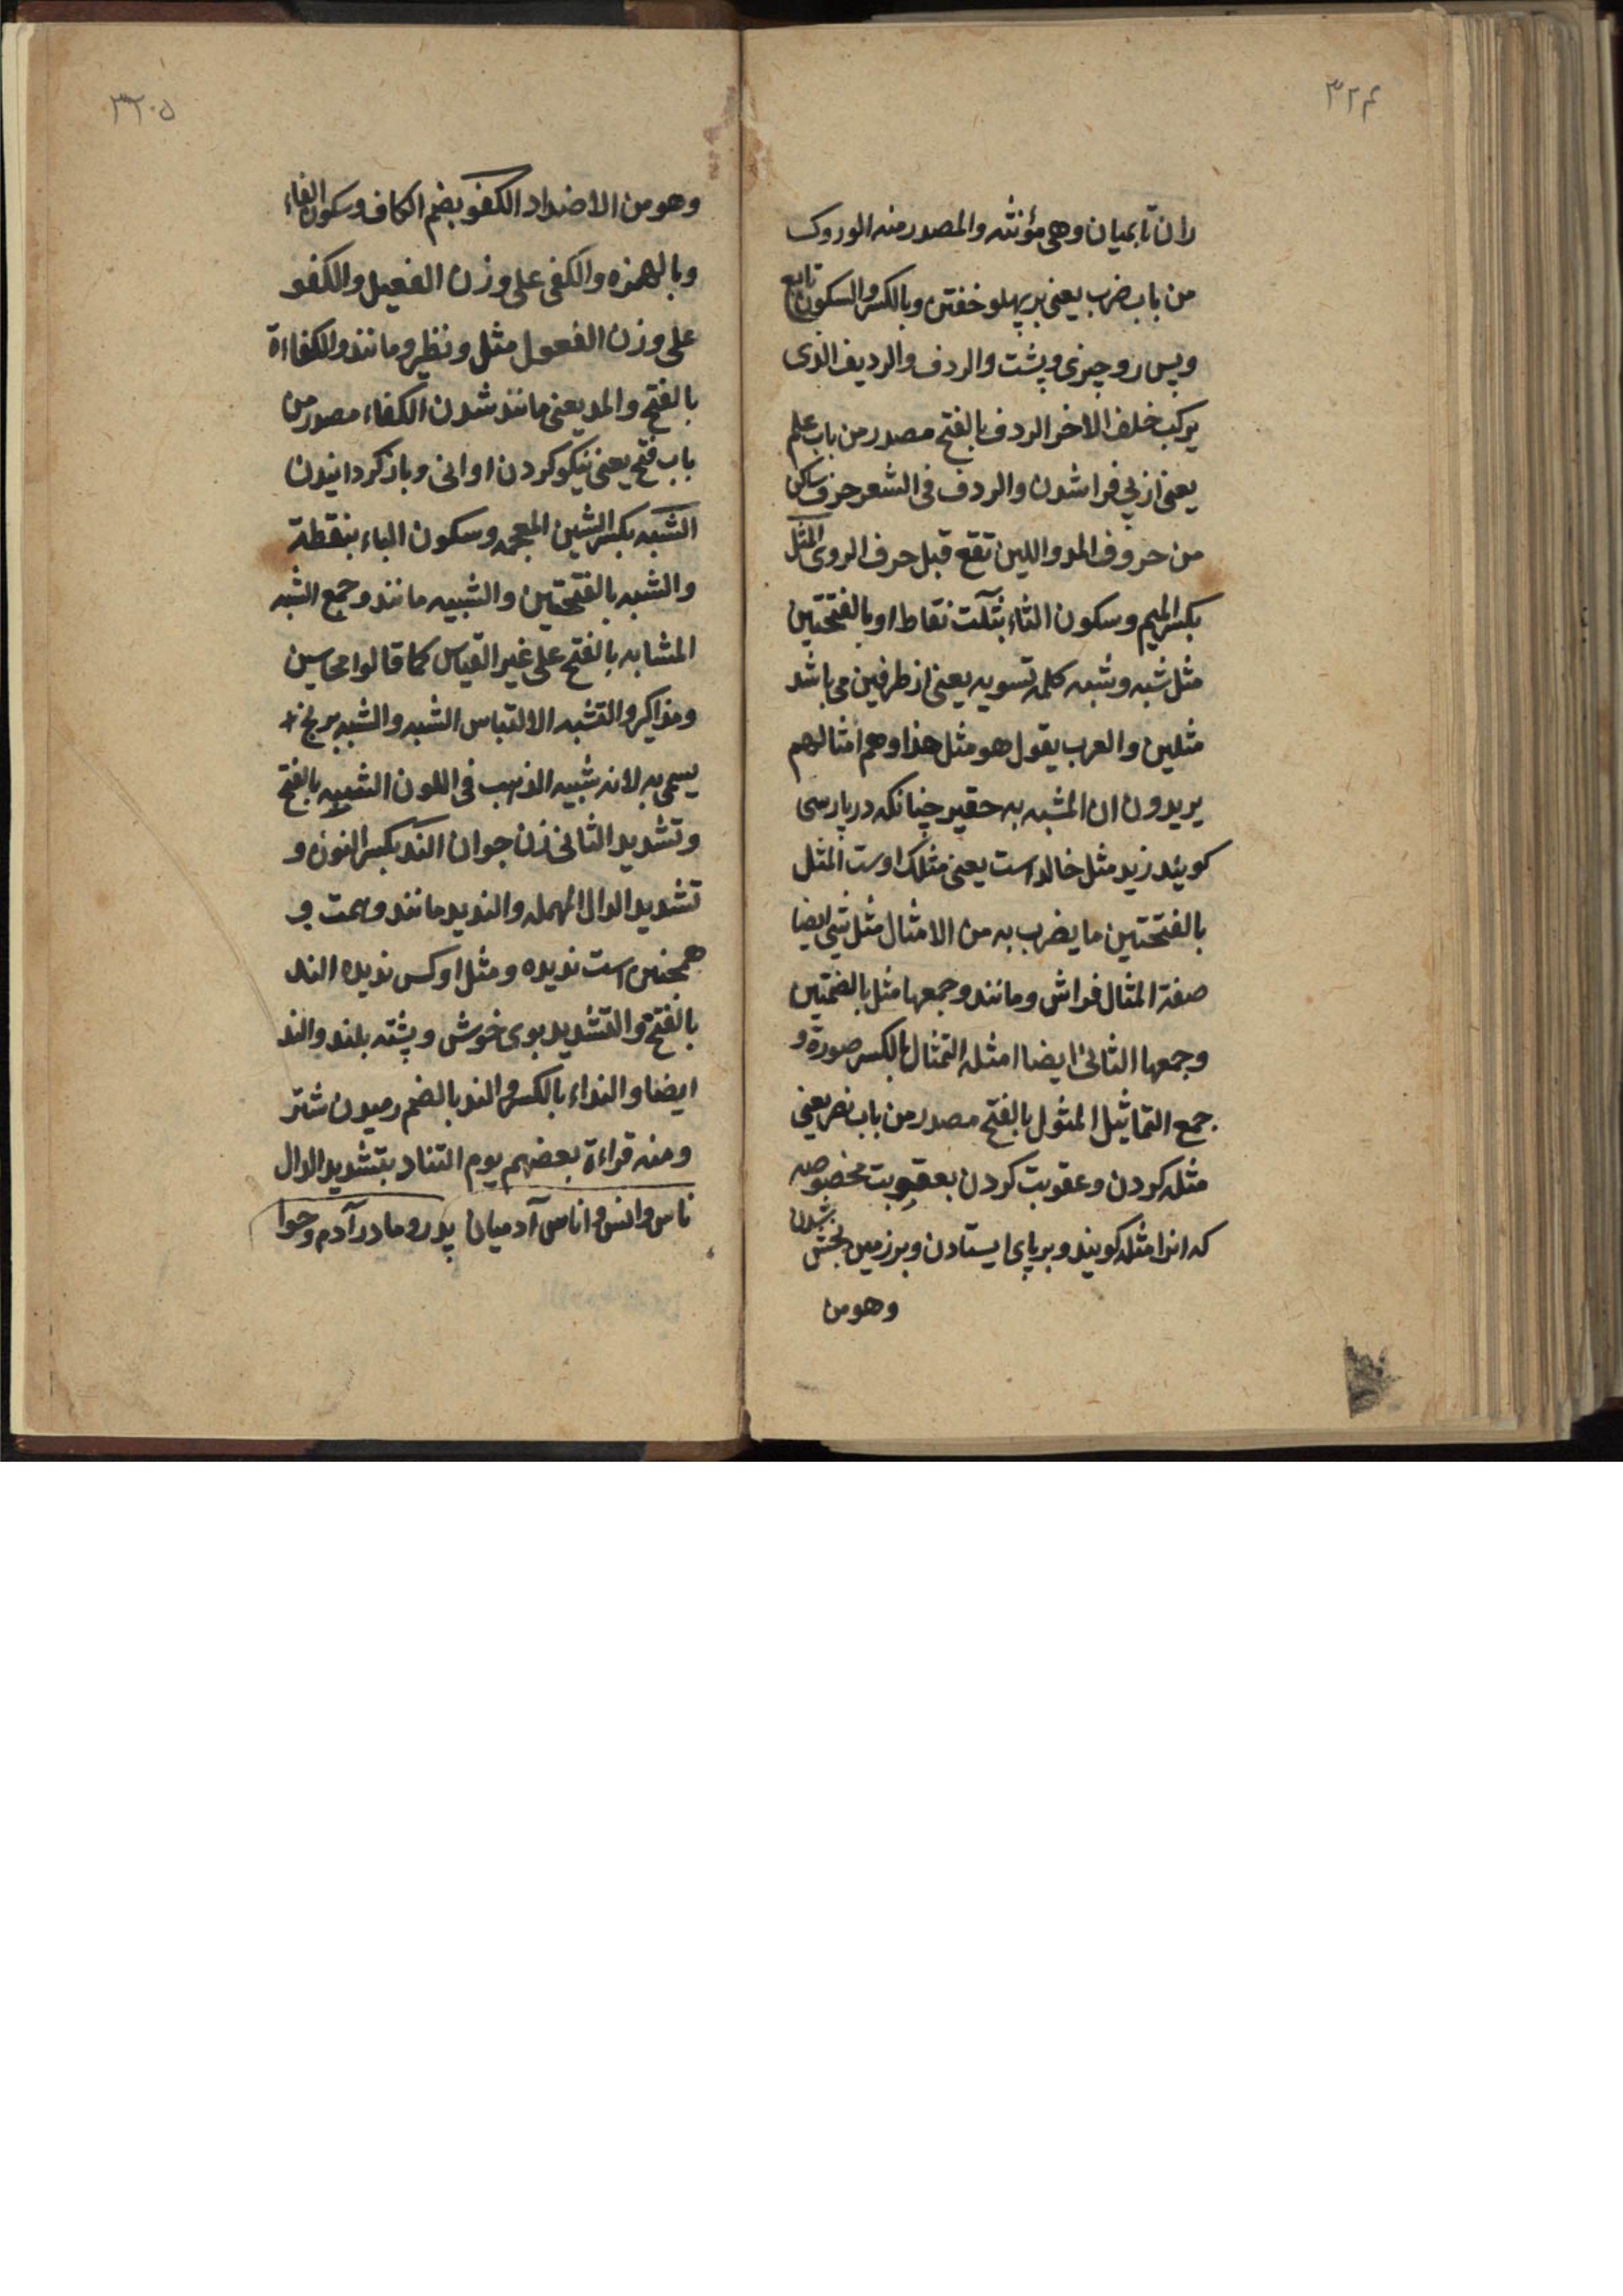 ۳۲۴
ران تا بمیان وهی مؤنثه والمصدر منه الوروک
من باب ضرب یعنی بر پهلو خفتن وبالکسر والسکون تابع
وپس رو چیزی وپشت والردف والردیف الذی
یرکب خلف الاخر الردف بالفتح مصدر من باب علم
یعنی از پی فرا شدن والردف فی الشعر حرف ساکن
من حروف المد واللین تقع قبل حرف الروی المثل
بکسر المیم وسکون الثاء بثلت نقاط او بالفتحتین
مثل شبه وشبه کلمه تسویه یعنی از طرفین می باشد
مثلین والعرب یقول هو مثل هذا وهم امثالهم
یریدون ان المشبه به حقیر چنانکه در پارسی
کویند زید مثل خالد است یعنی مثلک اوست المثل
بالفتحتین ما یضرب به من الامثال مثل شیء ایضا
صفة المثال فراش ومانند وجمعها مثل بالضمتین
وجمعها الثانی ایضا امثله التمثال بالکسر صورة و
جمع التماثیل المثول بالفتح مصدر من باب نصر یعنی
مثله کردن وعقوبت کردن بعقوبت مخصوصه
که انرا مثله کویند وبر پای ایستادن وبر زمین بخش شدن
وهو من
۳۲۰۵
وهو من الاضداد الکفو بضم الکاف وسکون الفاء
وبالهمزه والکفی علی وزن الفعیل والکفو
علی وزن الفعول مثل ونظیر ومانند والکفاءة
بالفتح والمد یعنی مانند شدن الکفاء مصدر من
باب فتح یعنی نیکو کردن اوانی وباز کردانیدن
الشبه بکسر الشین المعجمه وسکون الباء بنقطة
والشبه بالفتحتین والشبیه مانند وجمع الشبه
المشابه بالفتح علی غیر القیاس کما قالوا محاسین
ومذاکیر والتشبه الالتباس الشبه والشبه برنج
یسمی به لانه شبیه الذهب فی اللون الشبیه بالفتح
وتشدید الثانی زن جوان الند بکسر النون و
تشدید الدال المهمله والندید مانند وهمت و
همچنین است ندیده ومثل اوکس ندیده الند
بالفتح والتشدید بوی خوش وپشته بلند والند
ایضا والنداء بالکسر والند بالضم رمیدن شتر
ومنه قراءة بعضهم یوم التناد بتشدید الدال
ناس وانس واناس آدمیان پدر ومادر آدم وحوا